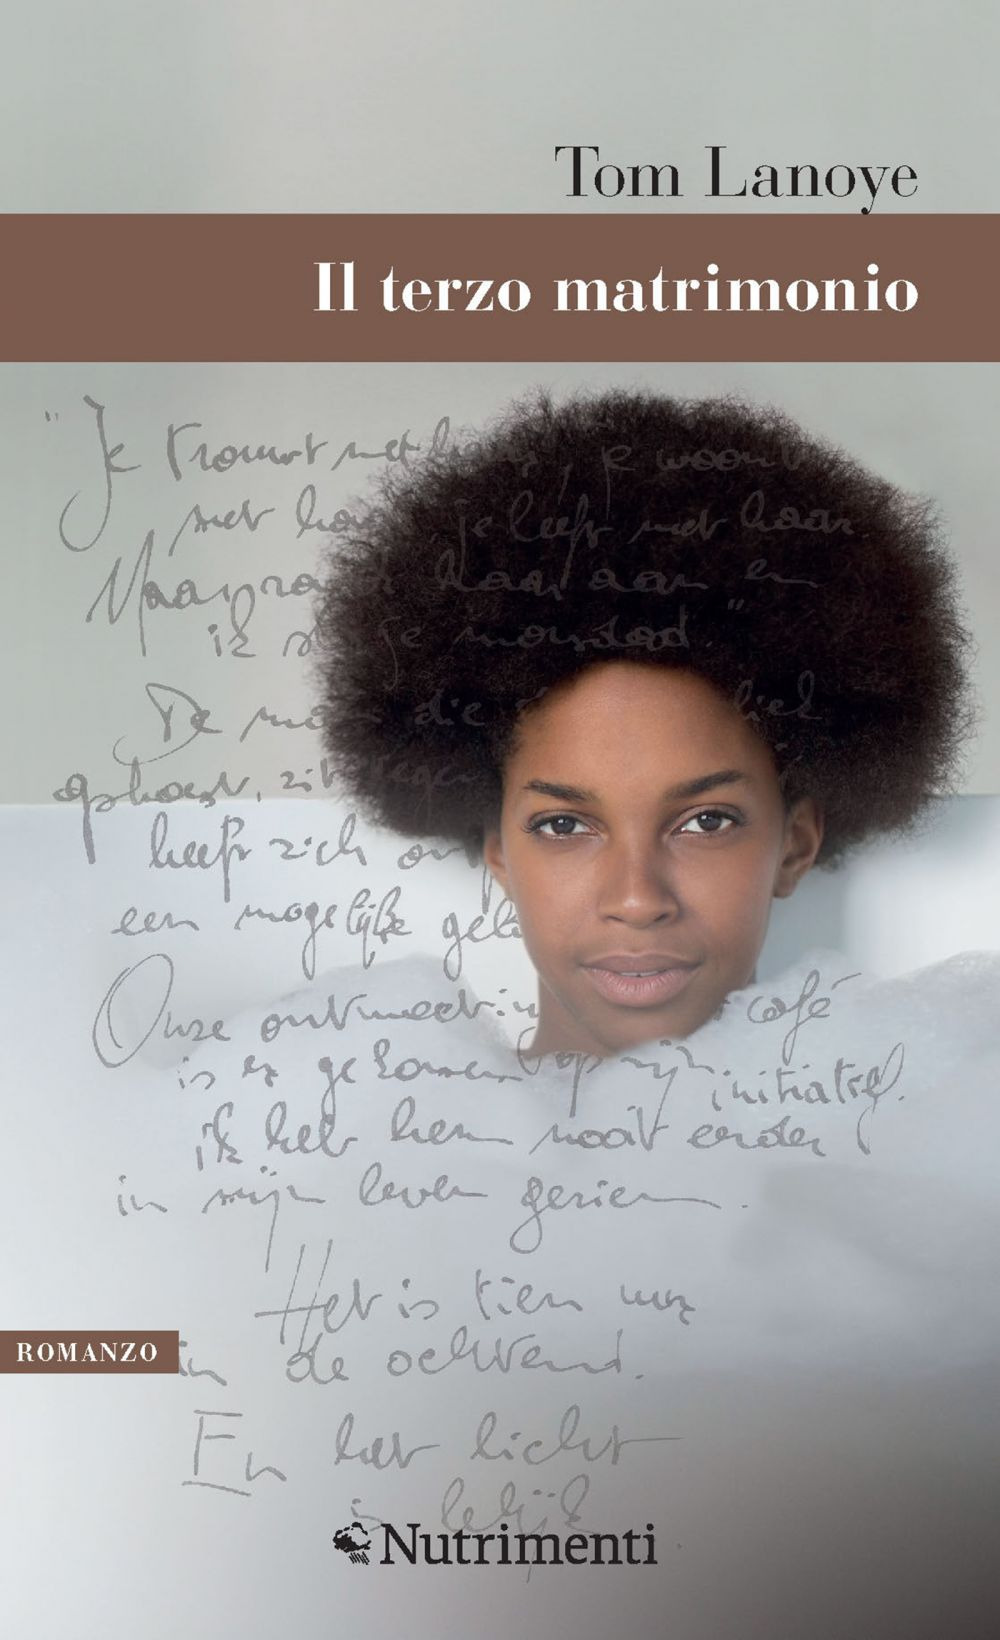 Tom Lanoye
Il terzo matrimonio
"Je trouwt met haar, je woont
met haar, je leeft met haar.
Maar raak haar aan en
ik sla je morsdood."
De man die
ophoest, zit tegen
heeft zich
een mogelijke
Onze ontmoeting café
is er gekomen op mijn initiatief.
ik heb hem nooit eerder
in mijn leven gezien.
Het is tien uur
in de ochtend.
ROMANZO
En het licht
is lelijk.
Nutrimenti